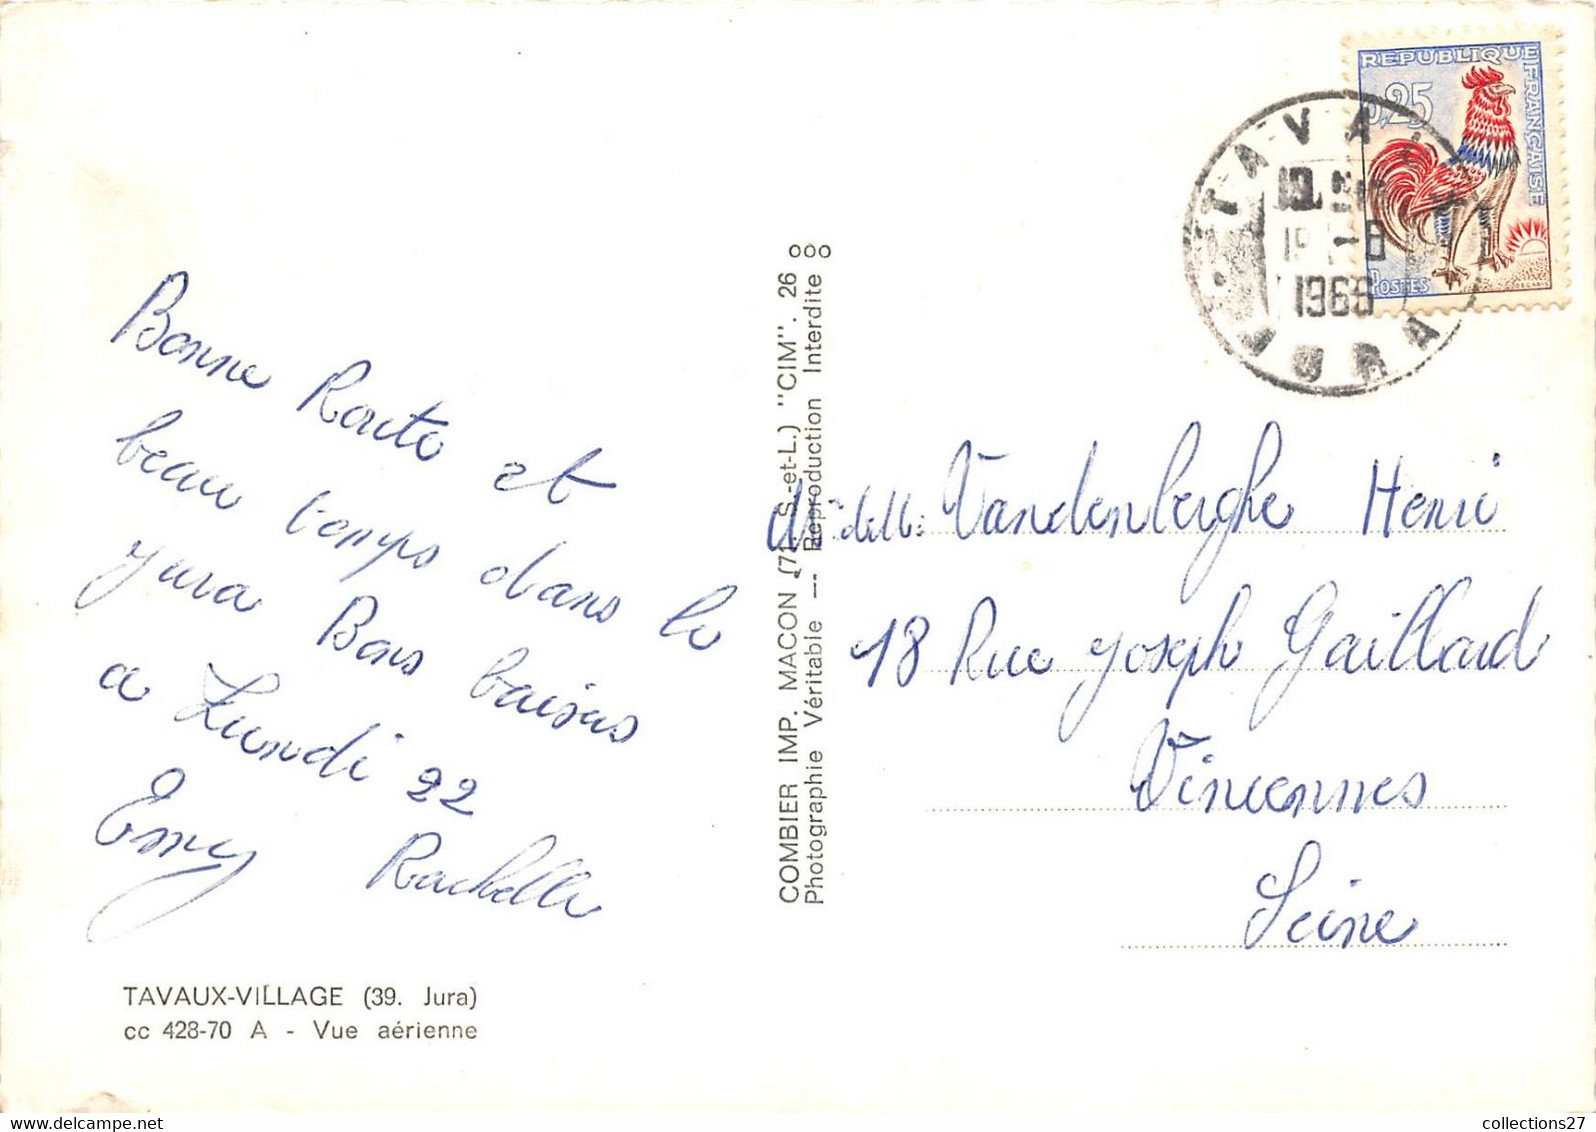 Bonne Route et
beau temps dans le
Jura Bons baisers
a Lundi 22
Emy Rachelle
TAVAUX-VILLAGE (39. Jura)
cc 428-70 A - Vue aérienne
COMBIER IMP. MACON (71 S.-et-L.) "CIM". 26
Photographie Véritable — Reproduction Interdite
REPUBLIQUE FRANÇAISE
0,25
POSTES
TAVAUX
1966
JURA
Vandenberghe Henri
18 Rue Joseph Gaillard
Vincennes
Seine
collections27